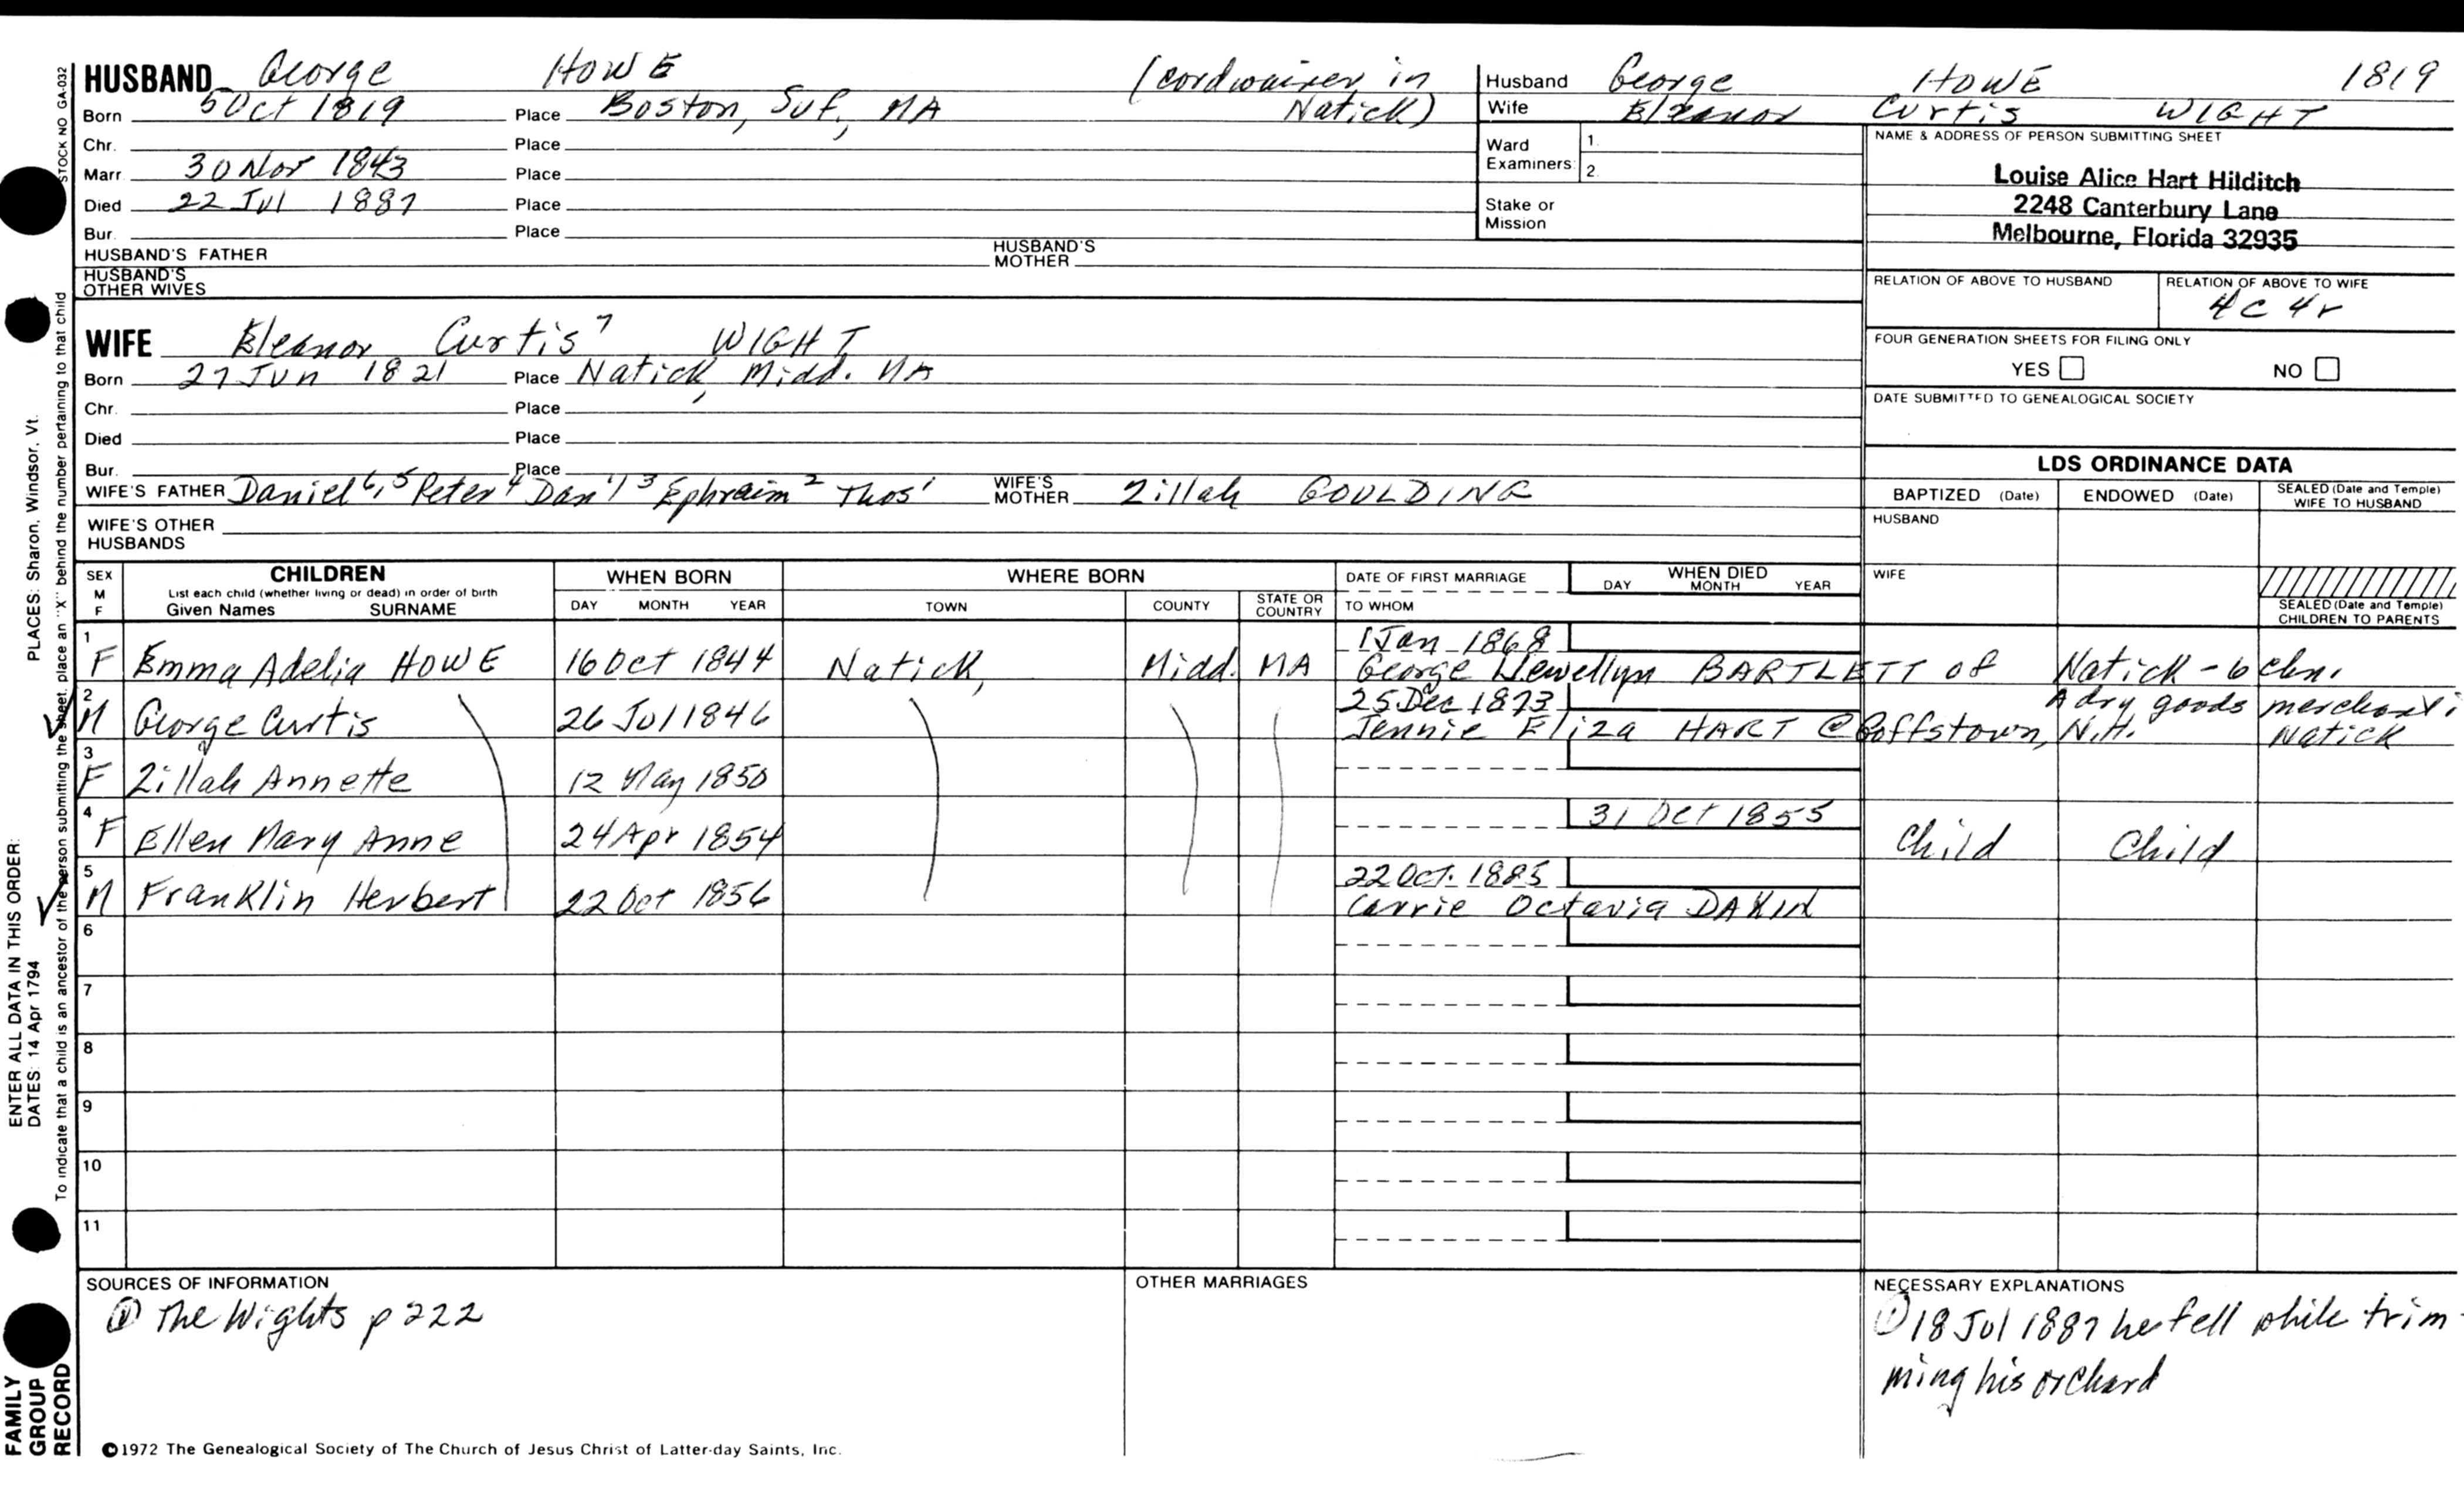 HUSBAND George HOWE (cordwainer in Natick)
Born 5 Oct 1819 Place Boston, Suf., MA
Chr. Place
Marr. 30 Nov 1843 Place
Died 22 Jul 1887 Place
Bur. Place
HUSBAND'S FATHER HUSBAND'S MOTHER
HUSBAND'S OTHER WIVES
WIFE Eleanor Curtis⁷ WIGHT
Born 27 Jun 1821 Place Natick, Midd. MA
Chr. Place
Died Place
Bur. Place
WIFE'S FATHER Daniel⁶,⁵ Peter⁴ Dan'l³ Ephraim² Thos¹ WIFE'S MOTHER Zillah GOULDING
WIFE'S OTHER HUSBANDS
Husband George HOWE 1819
Wife Eleanor Curtis WIGHT
Ward Examiners: 1. 2.
Stake or Mission
NAME & ADDRESS OF PERSON SUBMITTING SHEET
Louise Alice Hart Hilditch
2248 Canterbury Lane
Melbourne, Florida 32935
RELATION OF ABOVE TO HUSBAND RELATION OF ABOVE TO WIFE
4c 4r
FOUR GENERATION SHEETS FOR FILING ONLY
YES NO
DATE SUBMITTED TO GENEALOGICAL SOCIETY
LDS ORDINANCE DATA
BAPTIZED (Date) ENDOWED (Date) SEALED (Date and Temple) WIFE TO HUSBAND
HUSBAND
WIFE
SEALED (Date and Temple) CHILDREN TO PARENTS
SEX M F CHILDREN WHEN BORN WHERE BORN DATE OF FIRST MARRIAGE WHEN DIED
List each child (whether living or dead) in order of birth DAY MONTH YEAR
Given Names SURNAME DAY MONTH YEAR TOWN COUNTY STATE OR COUNTRY TO WHOM
1 1 Jan 1868
F Emma Adelia HOWE 16 Oct 1844 Natick, Midd. MA George Llewellyn BARTLETT of Natick - 6 chn.
2 25 Dec 1873 A dry goods merchant i
M George Curtis 26 Jul 1846 Jennie Eliza HART @ Goffstown, N.H. Natick
3
F Zillah Annette 12 May 1850
4 31 Oct 1855
F Ellen Mary Anne 24 Apr 1854 Child Child
5 22 Oct. 1885
M Franklin Herbert 22 Oct 1856 Carrie Octavia DAKIN
6
7
8
9
10
11
SOURCES OF INFORMATION
① The Wights p 222
OTHER MARRIAGES
NECESSARY EXPLANATIONS
① 18 Jul 1887 he fell while trim-
ming his orchard
©1972 The Genealogical Society of The Church of Jesus Christ of Latter-day Saints, Inc.
STOCK NO GA-032
ENTER ALL DATA IN THIS ORDER: PLACES: Sharon, Windsor, Vt.
DATES: 14 Apr 1794
To indicate that a child is an ancestor of the person submitting the sheet, place an "X" behind the number pertaining to that child
FAMILY
GROUP
RECORD